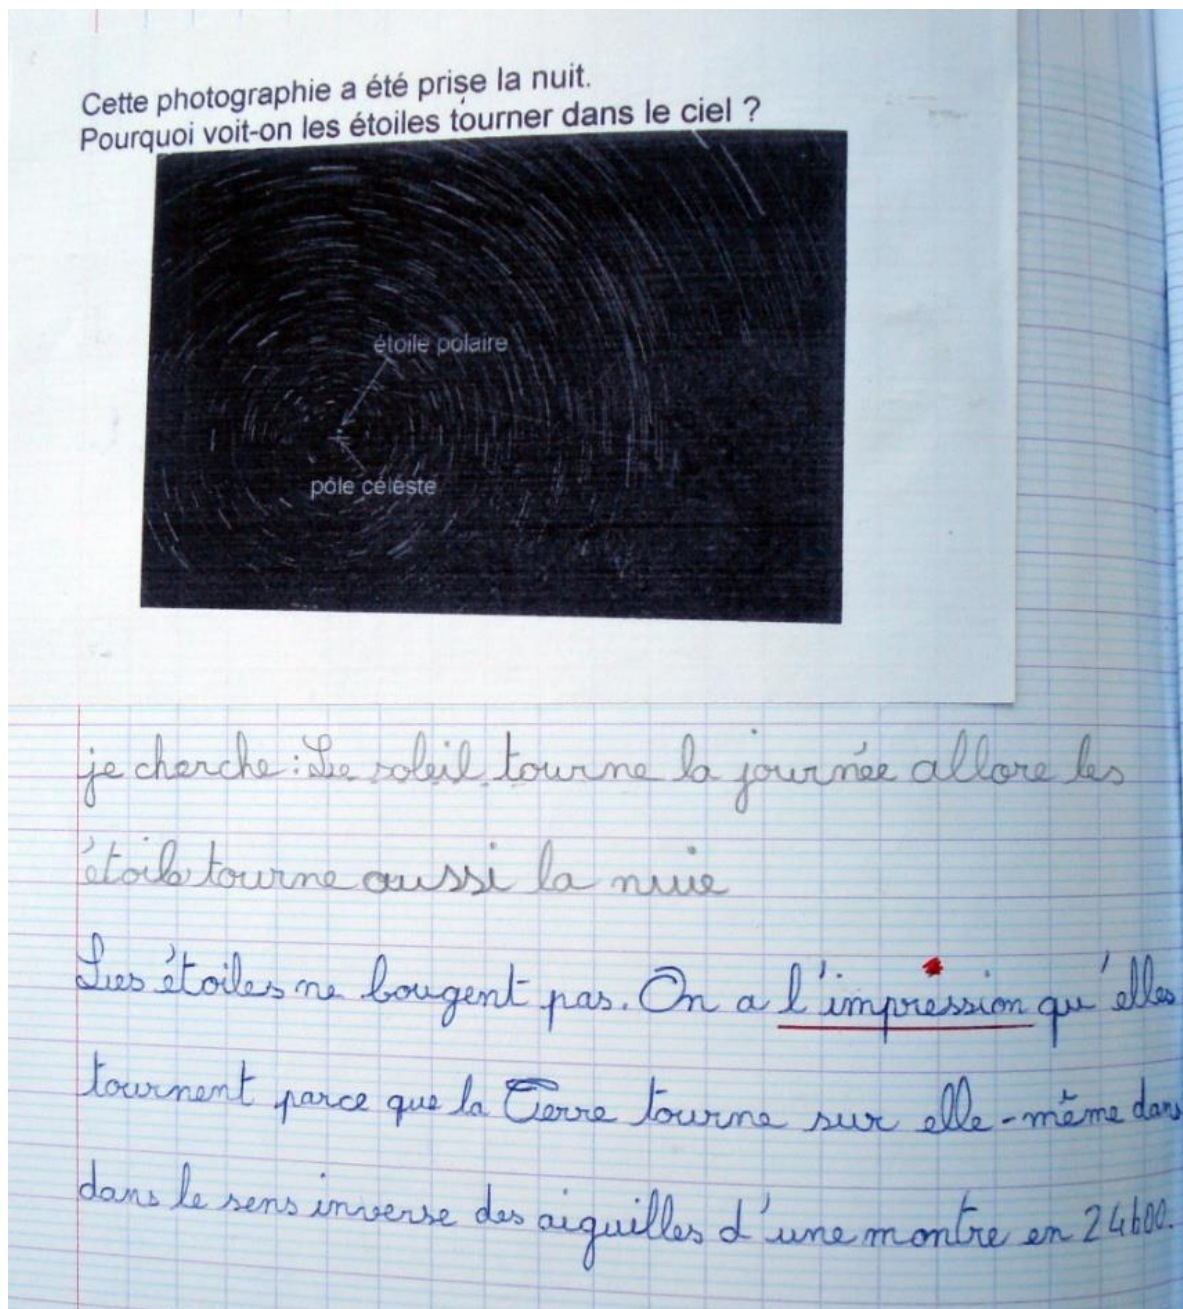 Cette photographie a été prise la nuit.
Pourquoi voit-on les étoiles tourner dans le ciel ?
étoile polaire
pôle céleste
je cherche : Le soleil tourne la journée allore les
étoile tourne aussi la nuie
Les étoiles ne bougent pas. On a l'impression qu'elles
tournent parce que la Terre tourne sur elle-même dans
dans le sens inverse des aiguilles d'une montre en 24h00.